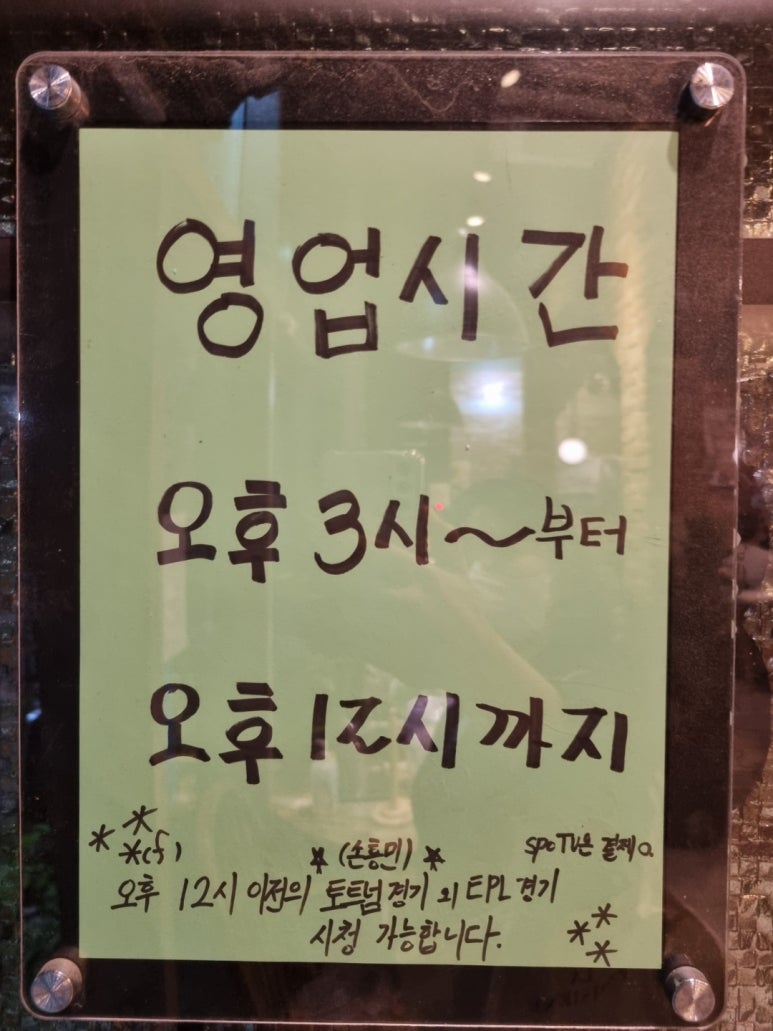 영업시간
오후 3시~부터
오후 12시까지
(손흥민) SPOTV은 결제o.
오후 12시 이전의 토트넘경기 외 EPL경기
시청 가능합니다.